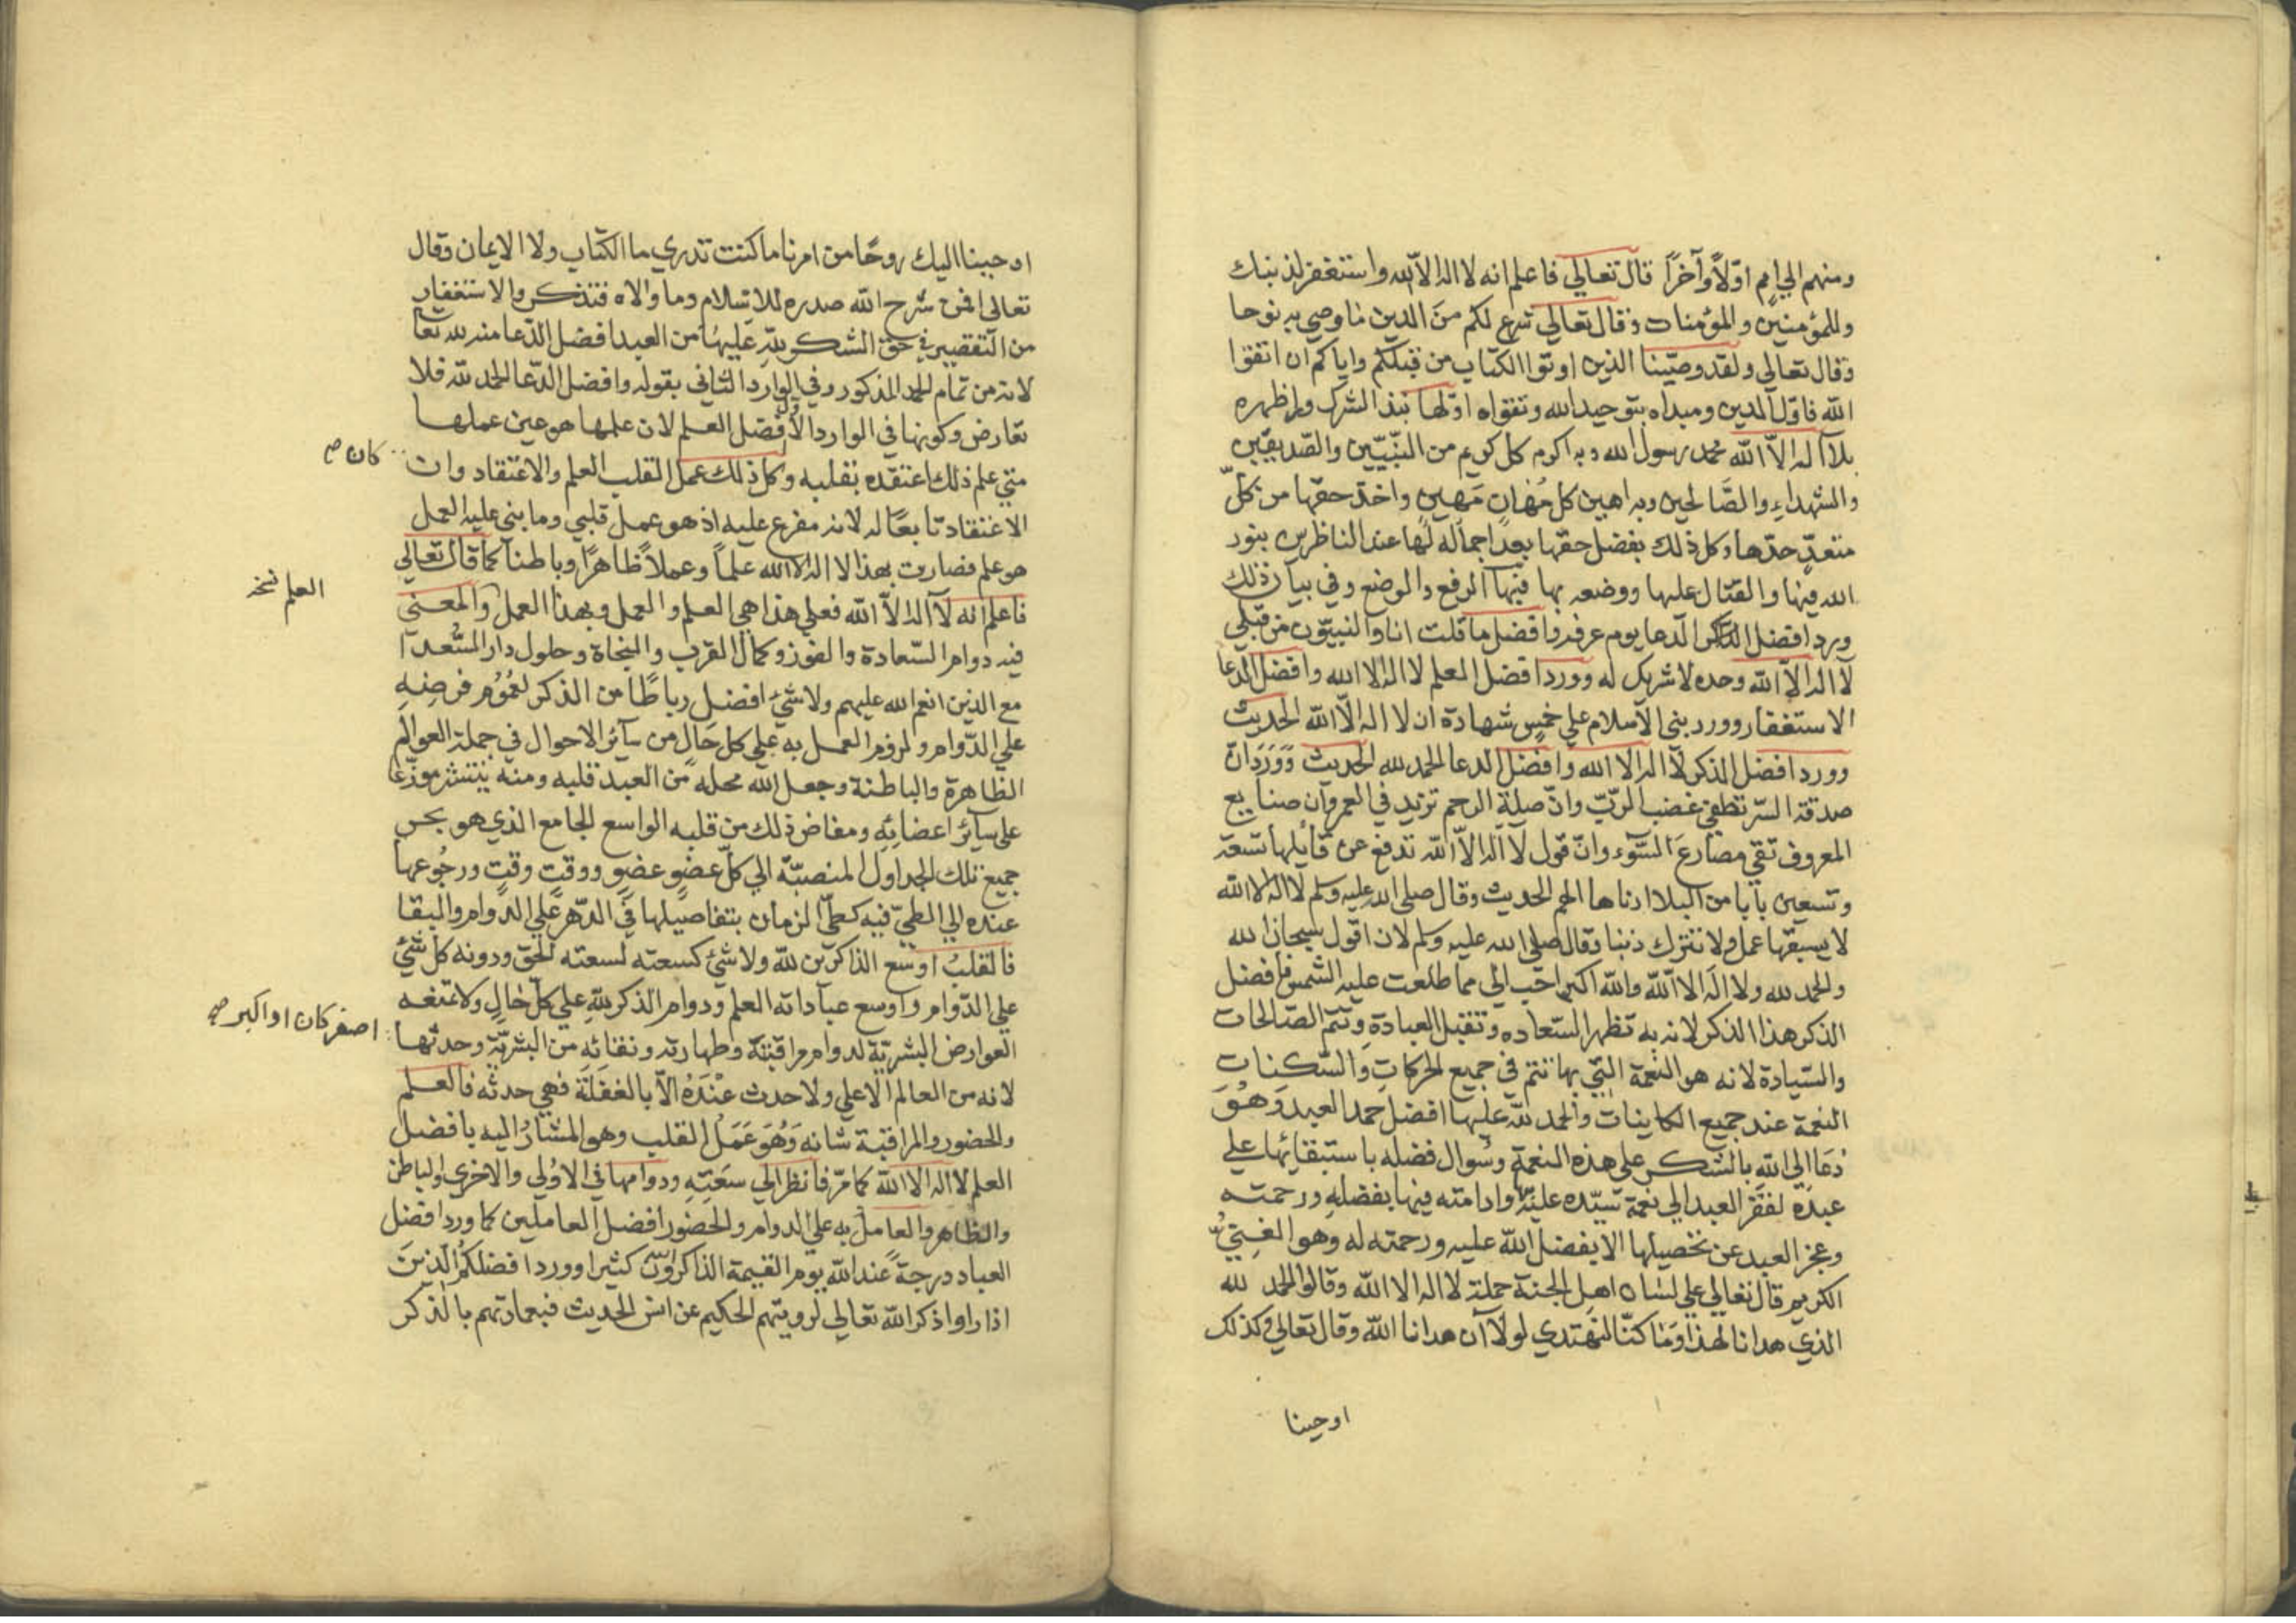 ومنهم الي امم اوّلاً وآخرًا قال تعالي فاعلم انه لا اله الا الله واستغفر لذنبك
وللمؤمنين والمؤمنات وقال تعالي شرع لكم من الدين ما وصي به نوحا
وقال تعالي ولقد وصّينا الذين اوتوا الكتاب من قبلكم واياكم ان اتقوا
الله فاوّل الدين ومبداه بتوحيد الله وتقواه اوّلها نبذ الشرك واظهره
بلا اله الاّ الله محمد رسول الله وبه اكرم كل كريم من النّبيّين والصّديقين
والشهداء والصَّالحين وبه اهين كل مُهان مَهين واخذ حقها من كلّ
متعدٍّ حدّها وكل ذلك بفضل حقها بعد اجماله لها عند الناظرين بنور
الله فيها والقتال عليها ووضعه بها فبها الرفع والوضع وفي بيان ذلك
ورد افضل الذكر الدعا يوم عرفه وافضل ما قلت انا والنبيّون من قبلي
لا اله الاّ الله وحده لا شريك له وورد افضل العلم لا اله الا الله وافضل الدعا
الاستغفار وورد بني الاسلام علي خمس شهادة ان لا اله الاّ الله الحديث
وورد افضل الذكر لا اله الا الله وافضل الدعا الحمد لله الحديث وَوَرَدَ انّ
صدقة السّر تطفي غضب الربّ وانّ صلة الرحم تزيد في العمر وان صنايع
المعروف تقي مصارعَ السّوء وانّ قول لا اله الاّ الله تدفع عن قايلها تسعة
وتسعين بابا من البلا ادناها الهم الحديث وقال صلي الله عليه وسلم لا اله الا الله
لا يسبقها عمل ولا تترك ذنبا وقال صلي الله عليه وسلم لان اقول سبحان الله
والحمد لله ولا اله الا الله والله اكبر احب الي مما طلعت عليه الشمس فافضل
الذكر هذا الذكر لانه به تظهر السّعاده وتقبل العبادة وتتم الصّالحات
والسّيادة لانه هو النعمة التّي بها تتم في جميع الحركات والسّكنات
النعمة عند جميع الكاينات والحمد لله عليها افضل حمد العبد وَهُوَ
دُعَا الي الله بالشكر علي هذه النعمة وسُوال فضله باستبقائها علي
عبده لفقر العبد الي نعمة سيّده عليه وادامته فيها بفضله ورحمته
وعجز العبد عن تحصيلها الا بفضل الله عليه ورحمته له وهو الغنيُّ
الكريم قال تعالي علي لسان اهل الجنة حملة لا اله الا الله وقالوا الحمد لله
الذي هدانا لهذا وما كنّا لنهتدي لولا ان هدانا الله وقال تعالي وكذلك
اوحينا
اوحينا اليك روحًا من امرنا ما كنت تدري ما الكتاب ولا الايمان وقال
تعالي افمن شرح الله صدره للاسلام وما والاه فتذكر والاستغفار
من التقصير في حق الشكر للهِ عَليها من العبد افضل الدّعا منه لله تعا
لانه من تمام الحمد المذكور وفي الوارد الثاني بقوله وافضل الدّعا الحمد لله فلا
تعارض وكونها في الوارد الاول افضل العلم لان علمها هو عين عملها
متي علم ذلك اعتقده بقلبه وكل ذلك عمل القلب العلم والاعتقاد وان
كان صح
الاعتقاد تابعًا له لانه مفرع عليه اذ هو عمل قلبي وما بني عليه العمل
هو علم فصارت بهذا لا اله الا الله علماً وعملاً ظاهرًا وباطنا كما قال تعالي
العلم نسخه
فاعلم انه لا اله الاّ الله فعلي هذا هي العلم والعمل وبهذا العمل والمعني
فيه دوام السّعادة والفوز وكمال القرب والنجاة وحلول دار السُّعدا
مع الذين انعم الله عليهم ولا شيء افضل رباطًا من الذكر لعُمُوم فرضِهِ
علي الدّوام ولزوم العمل به علي كل حال من ساير الاحوال في جملة العوالم
الظاهرة والباطنة وجعل الله محله من العبد قلبه ومنه ينتشر موزّعا
علي ساير اعضائه ومفاض ذلك من قلبه الواسع الجامع الذي هو بحر
جميع تلك الجداول المنصبّة الي كلّ عضوٍ عضوٍ ووقتٍ وقتٍ ورجُوعها
عنده الي الطيّ فيه كطيّ الزمان بتفاصيلها في الدّهر علي الدوام والبقا
فالقلبُ اوسع الذاكرين لله ولا شيء كسعته لسعته الحق ودونه كل شيء
علي الدّوام واوسع عباداته العلم ودوام الذكر للهِ علي كلّ حالٍ ولا تمنعه
العوارض البشريّة لدوام مراقبته وطهارته ونقائه من البشريّة وحدثها
اصغر كان او اكبر صح
لانه من العالم الاعلي ولا حدث عنْدَهُ الاّ بالغفلَة فهي حدثه فالعلم
والحضور والمراقبة شانه وَهُوَ عَمَل القلب وهو المشارُ اليه بافضل
العلم لا اله الا الله كما مرّ فانظر الي سعَتِهِ ودوامها في الاوُلي والاخري والباطن
والظاهر والعامل به علي الدوام والحضور افضل العاملين كما ورد افضل
العباد درجةً عند الله يوم القيمة الذاكرون الله كثيرا وورد افضلكُم الّذينَ
اذا راوا ذكر الله تعالي لرويتهم الحكيم عن انس الحديث فبعادتهم بالذكر